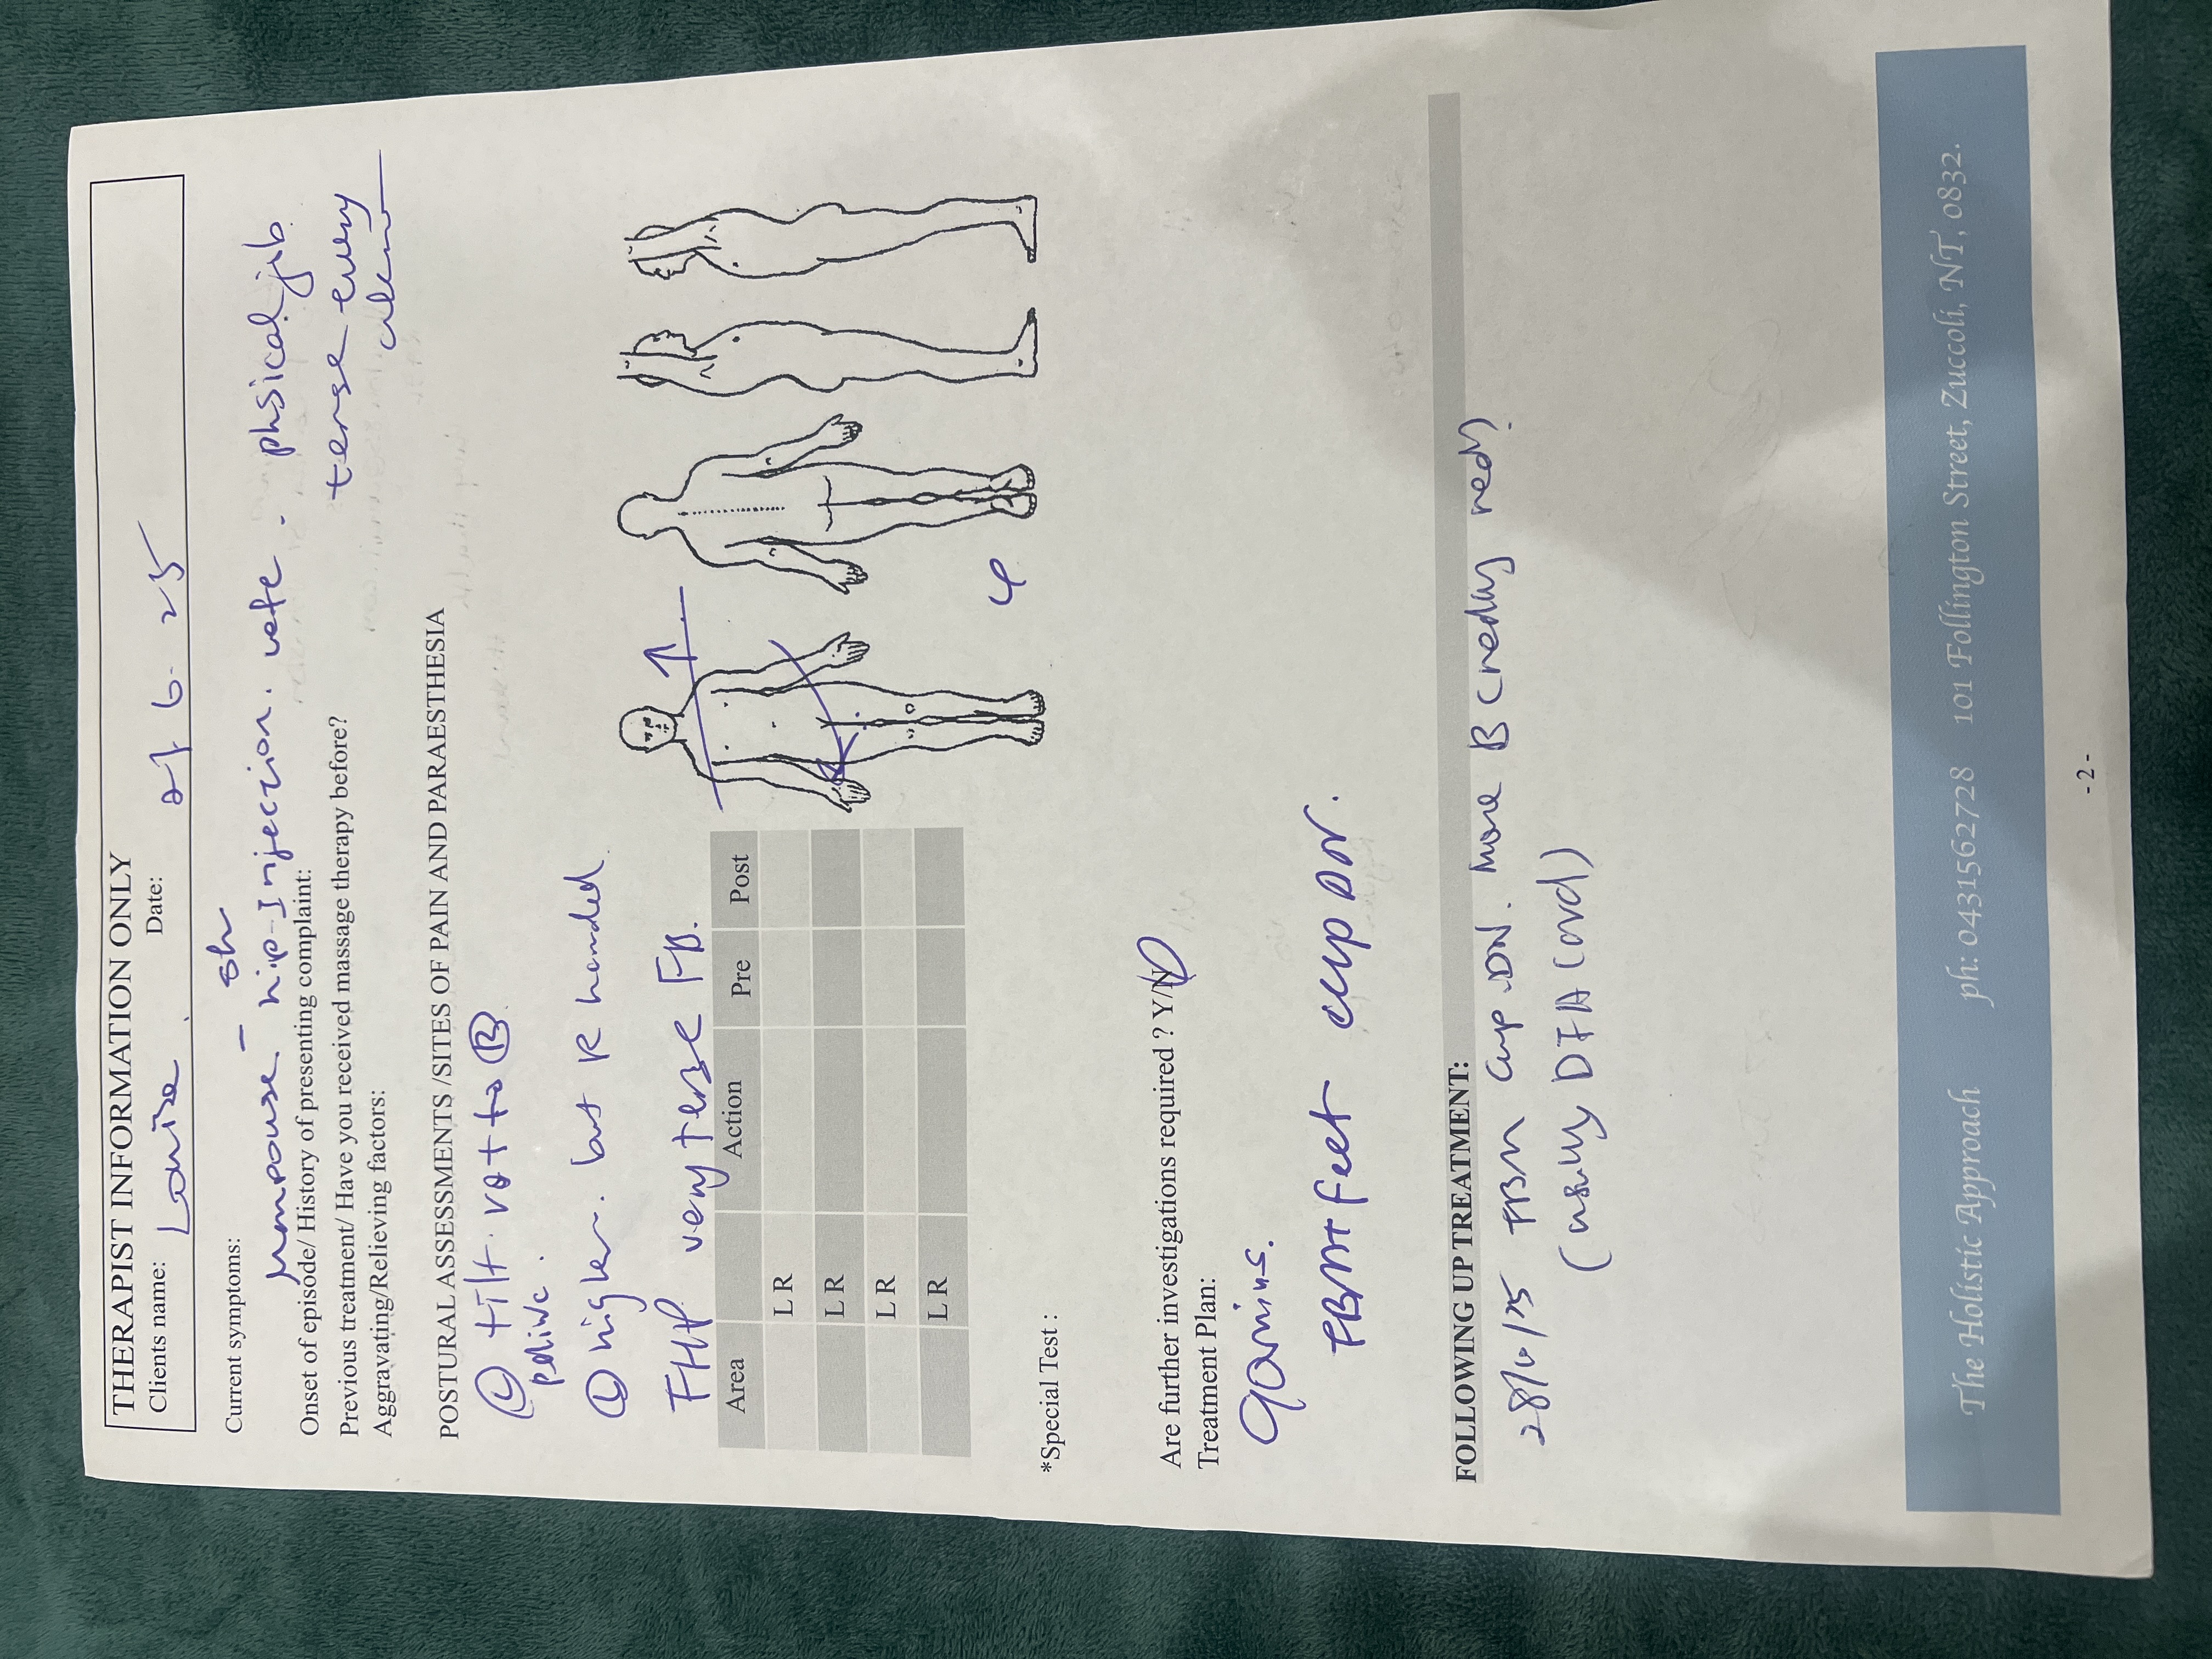 THERAPIST INFORMATION ONLY
Clients name: Louise Date: 6. 25
Current symptoms:
hip-Injection. physical job
tense every
Onset of episode/ History of presenting complaint:
Previous treatment/ Have you received massage therapy before?
Aggravating/Relieving factors:
POSTURAL ASSESSMENTS /SITES OF PAIN AND PARAESTHESIA
L tilt. rot to R
L higher. but R handed
FHP very tense FB.
Area Action Pre Post
L R
L R
L R
L R
*Special Test :
Are further investigations required ? Y/N
Treatment Plan:
45mins.
FBM+feet cup DN.
FOLLOWING UP TREATMENT:
28/6/25 FBM cup DN. more B
(usually
The Holistic Approach ph: 0431562728 101 Follington Street, Zuccoli, NT, 0832.
- 2 -